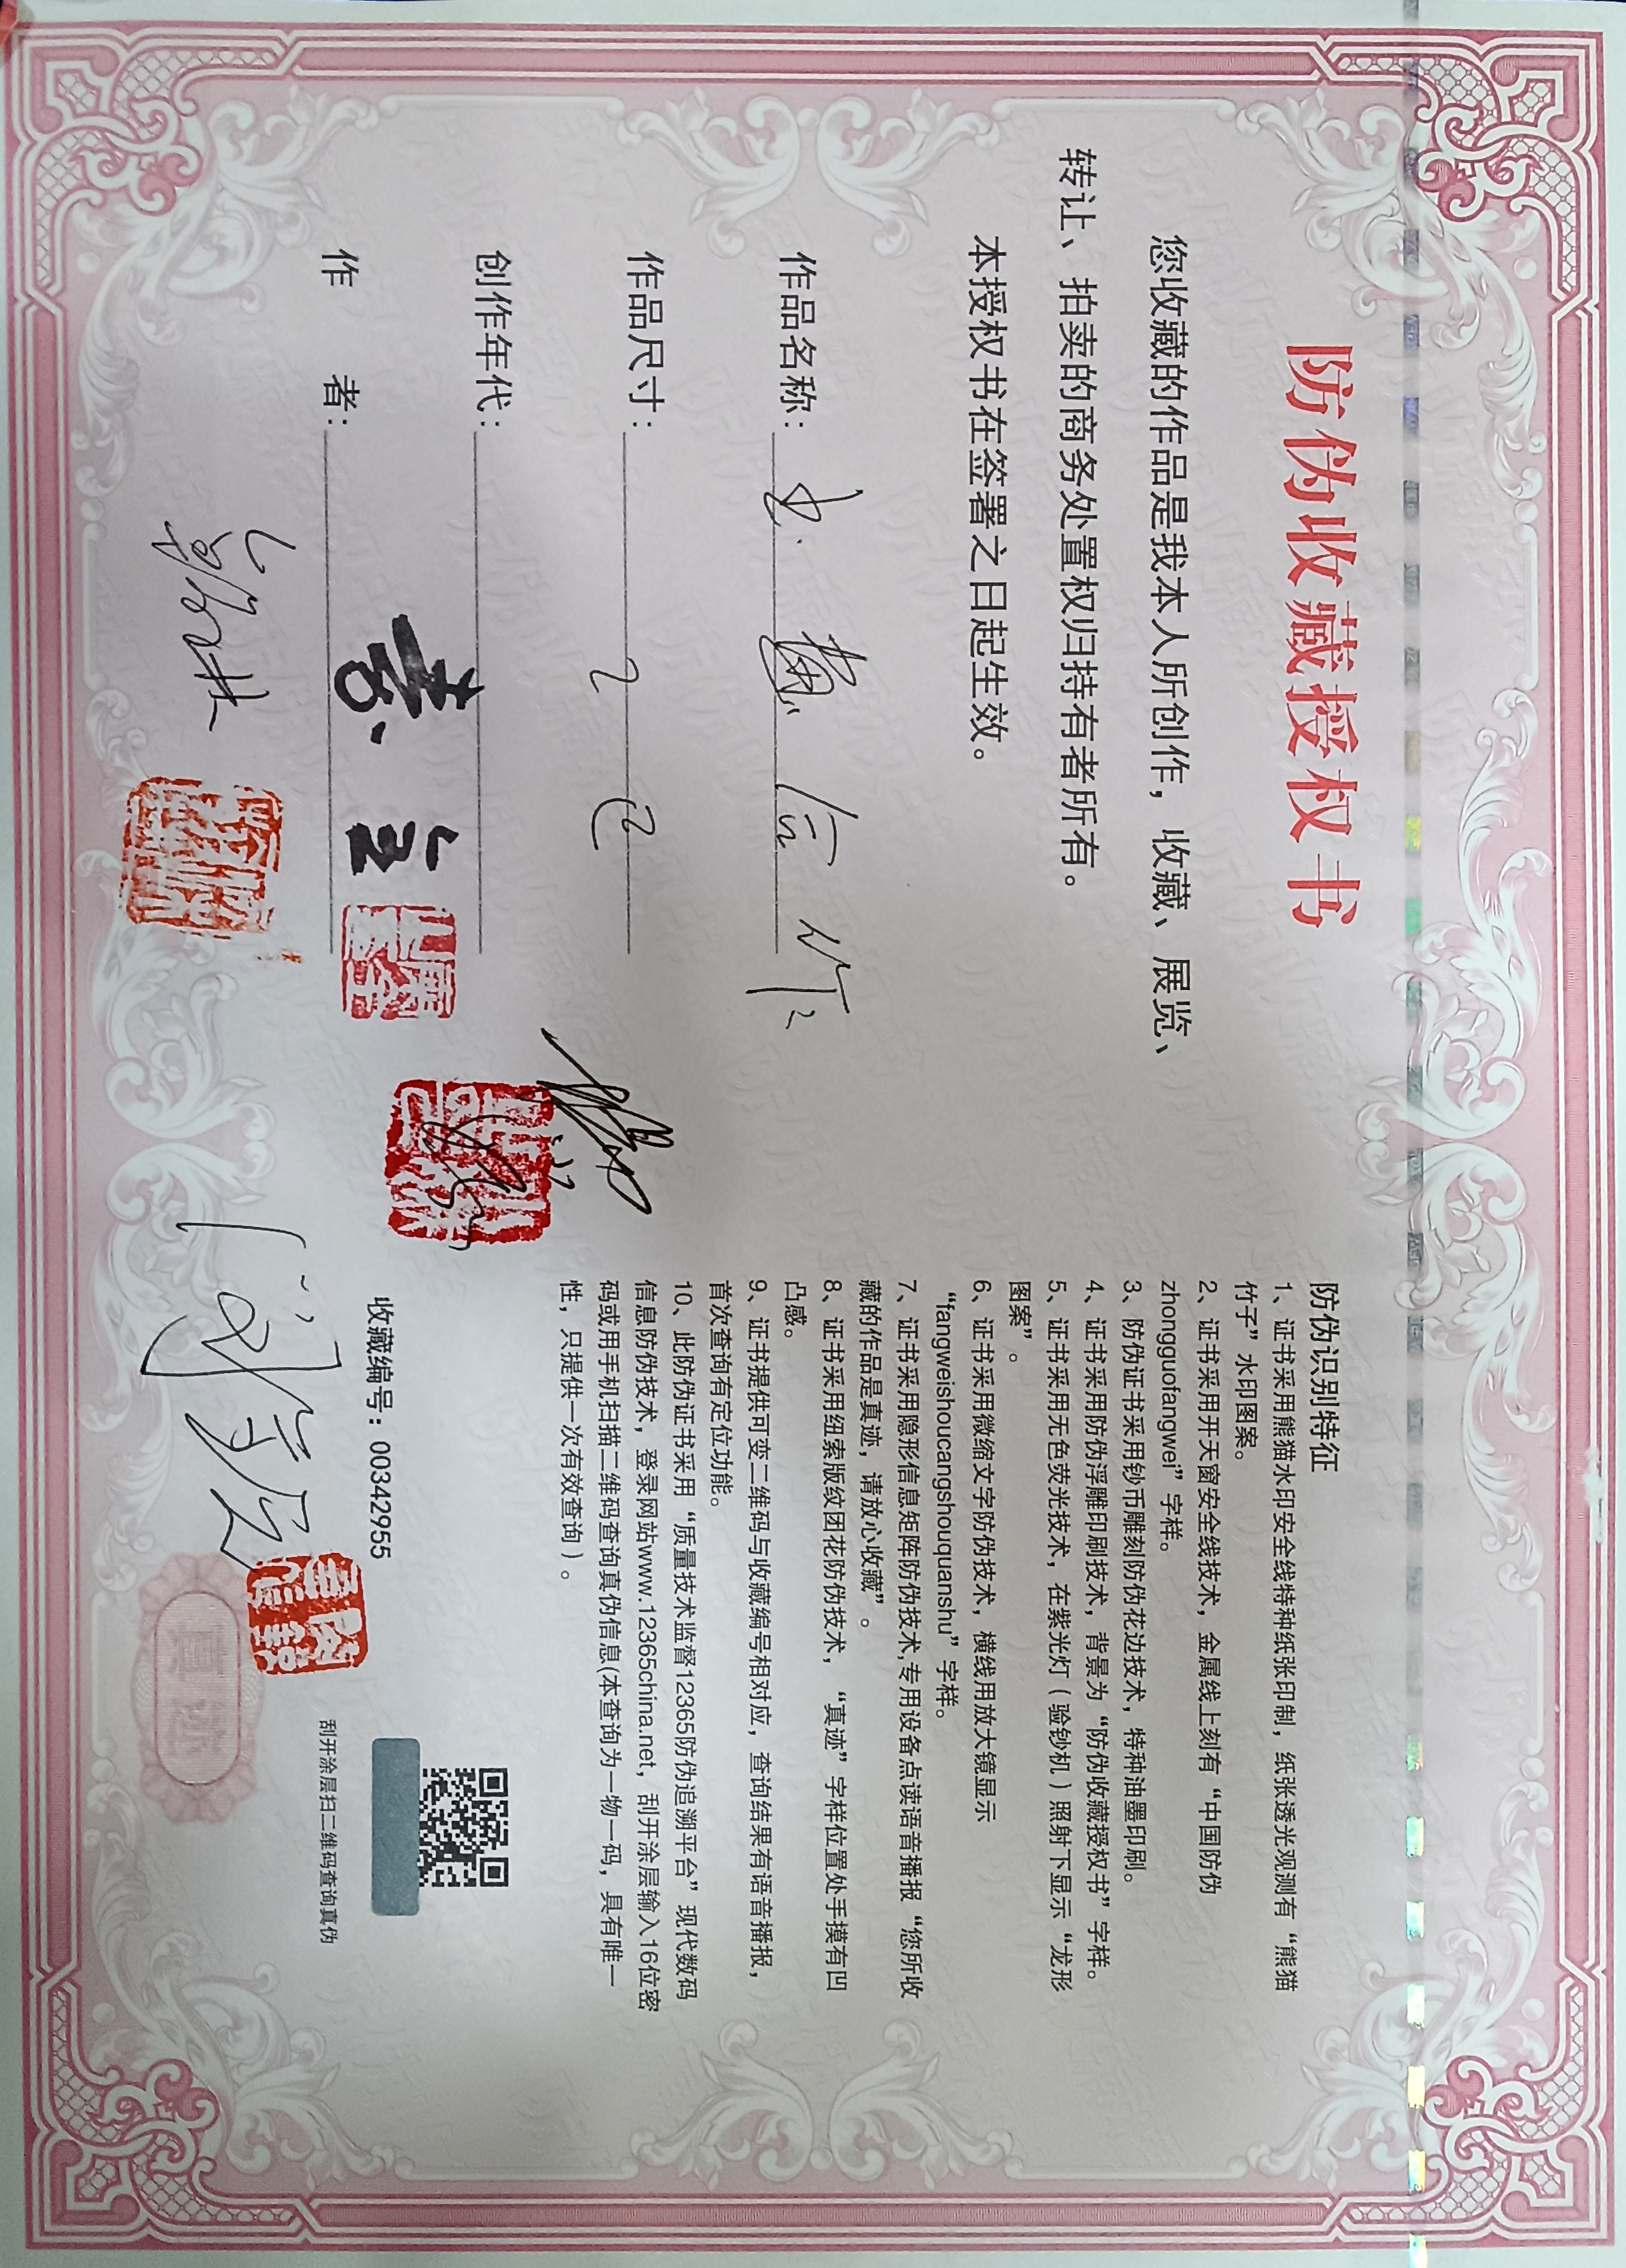 防伪收藏授权书
您收藏的作品是我本人所创作，收藏、展览、
转让、拍卖的商务处置权归持有者所有。
本授权书在签署之日起生效。
作品名称：
作品尺寸：
创作年代：
作 者：
防伪识别特征
1、证书采用熊猫水印安全线特种纸张印制，纸张透光观测有“熊猫
竹子”水印图案。
2、证书采用开天窗安全线技术，金属线上刻有“中国防伪
zhongguofangwei”字样。
3、防伪证书采用钞币雕刻防伪花边技术，特种油墨印刷。
4、证书采用防伪浮雕印刷技术，背景为“防伪收藏授权书”字样。
5、证书采用无色荧光技术，在紫光灯（验钞机）照射下显示“龙形
图案”。
6、证书采用微缩文字防伪技术，横线用放大镜显示
“fangweishoucangshouquanshu”字样。
7、证书采用隐形信息矩阵防伪技术,专用设备点读语音播报“您所收
藏的作品是真迹，请放心收藏”。
8、证书采用纽索版纹团花防伪技术，“真迹”字样位置处手摸有凹
凸感。
9、证书提供可变二维码与收藏编号相对应，查询结果有语音播报，
首次查询有定位功能。
10、此防伪证书采用“质量技术监督12365防伪追溯平台”现代数码
信息防伪技术，登录网站www.12365china.net，刮开涂层输入16位密
码或用手机扫描二维码查询真伪信息(本查询为一物一码，具有唯一
性，只提供一次有效查询）。
收藏编号：00342955
刮开涂层扫二维码查询真伪
真迹